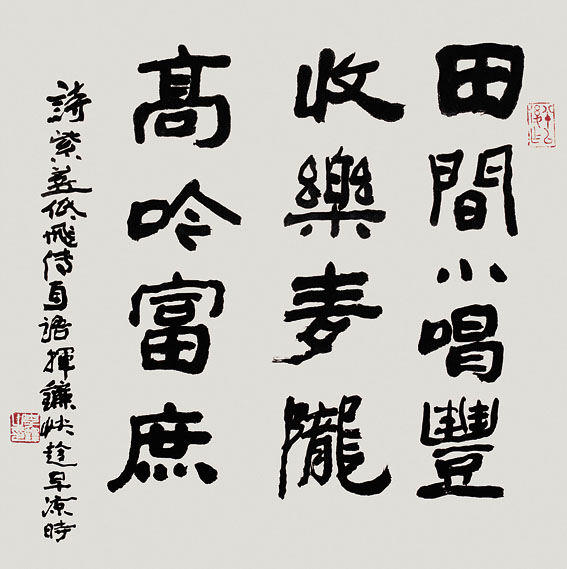 田間小唱豐
收樂麦隴
高吟富庶
詩紫燕低飛傳耳語揮鐮快趁早凉時